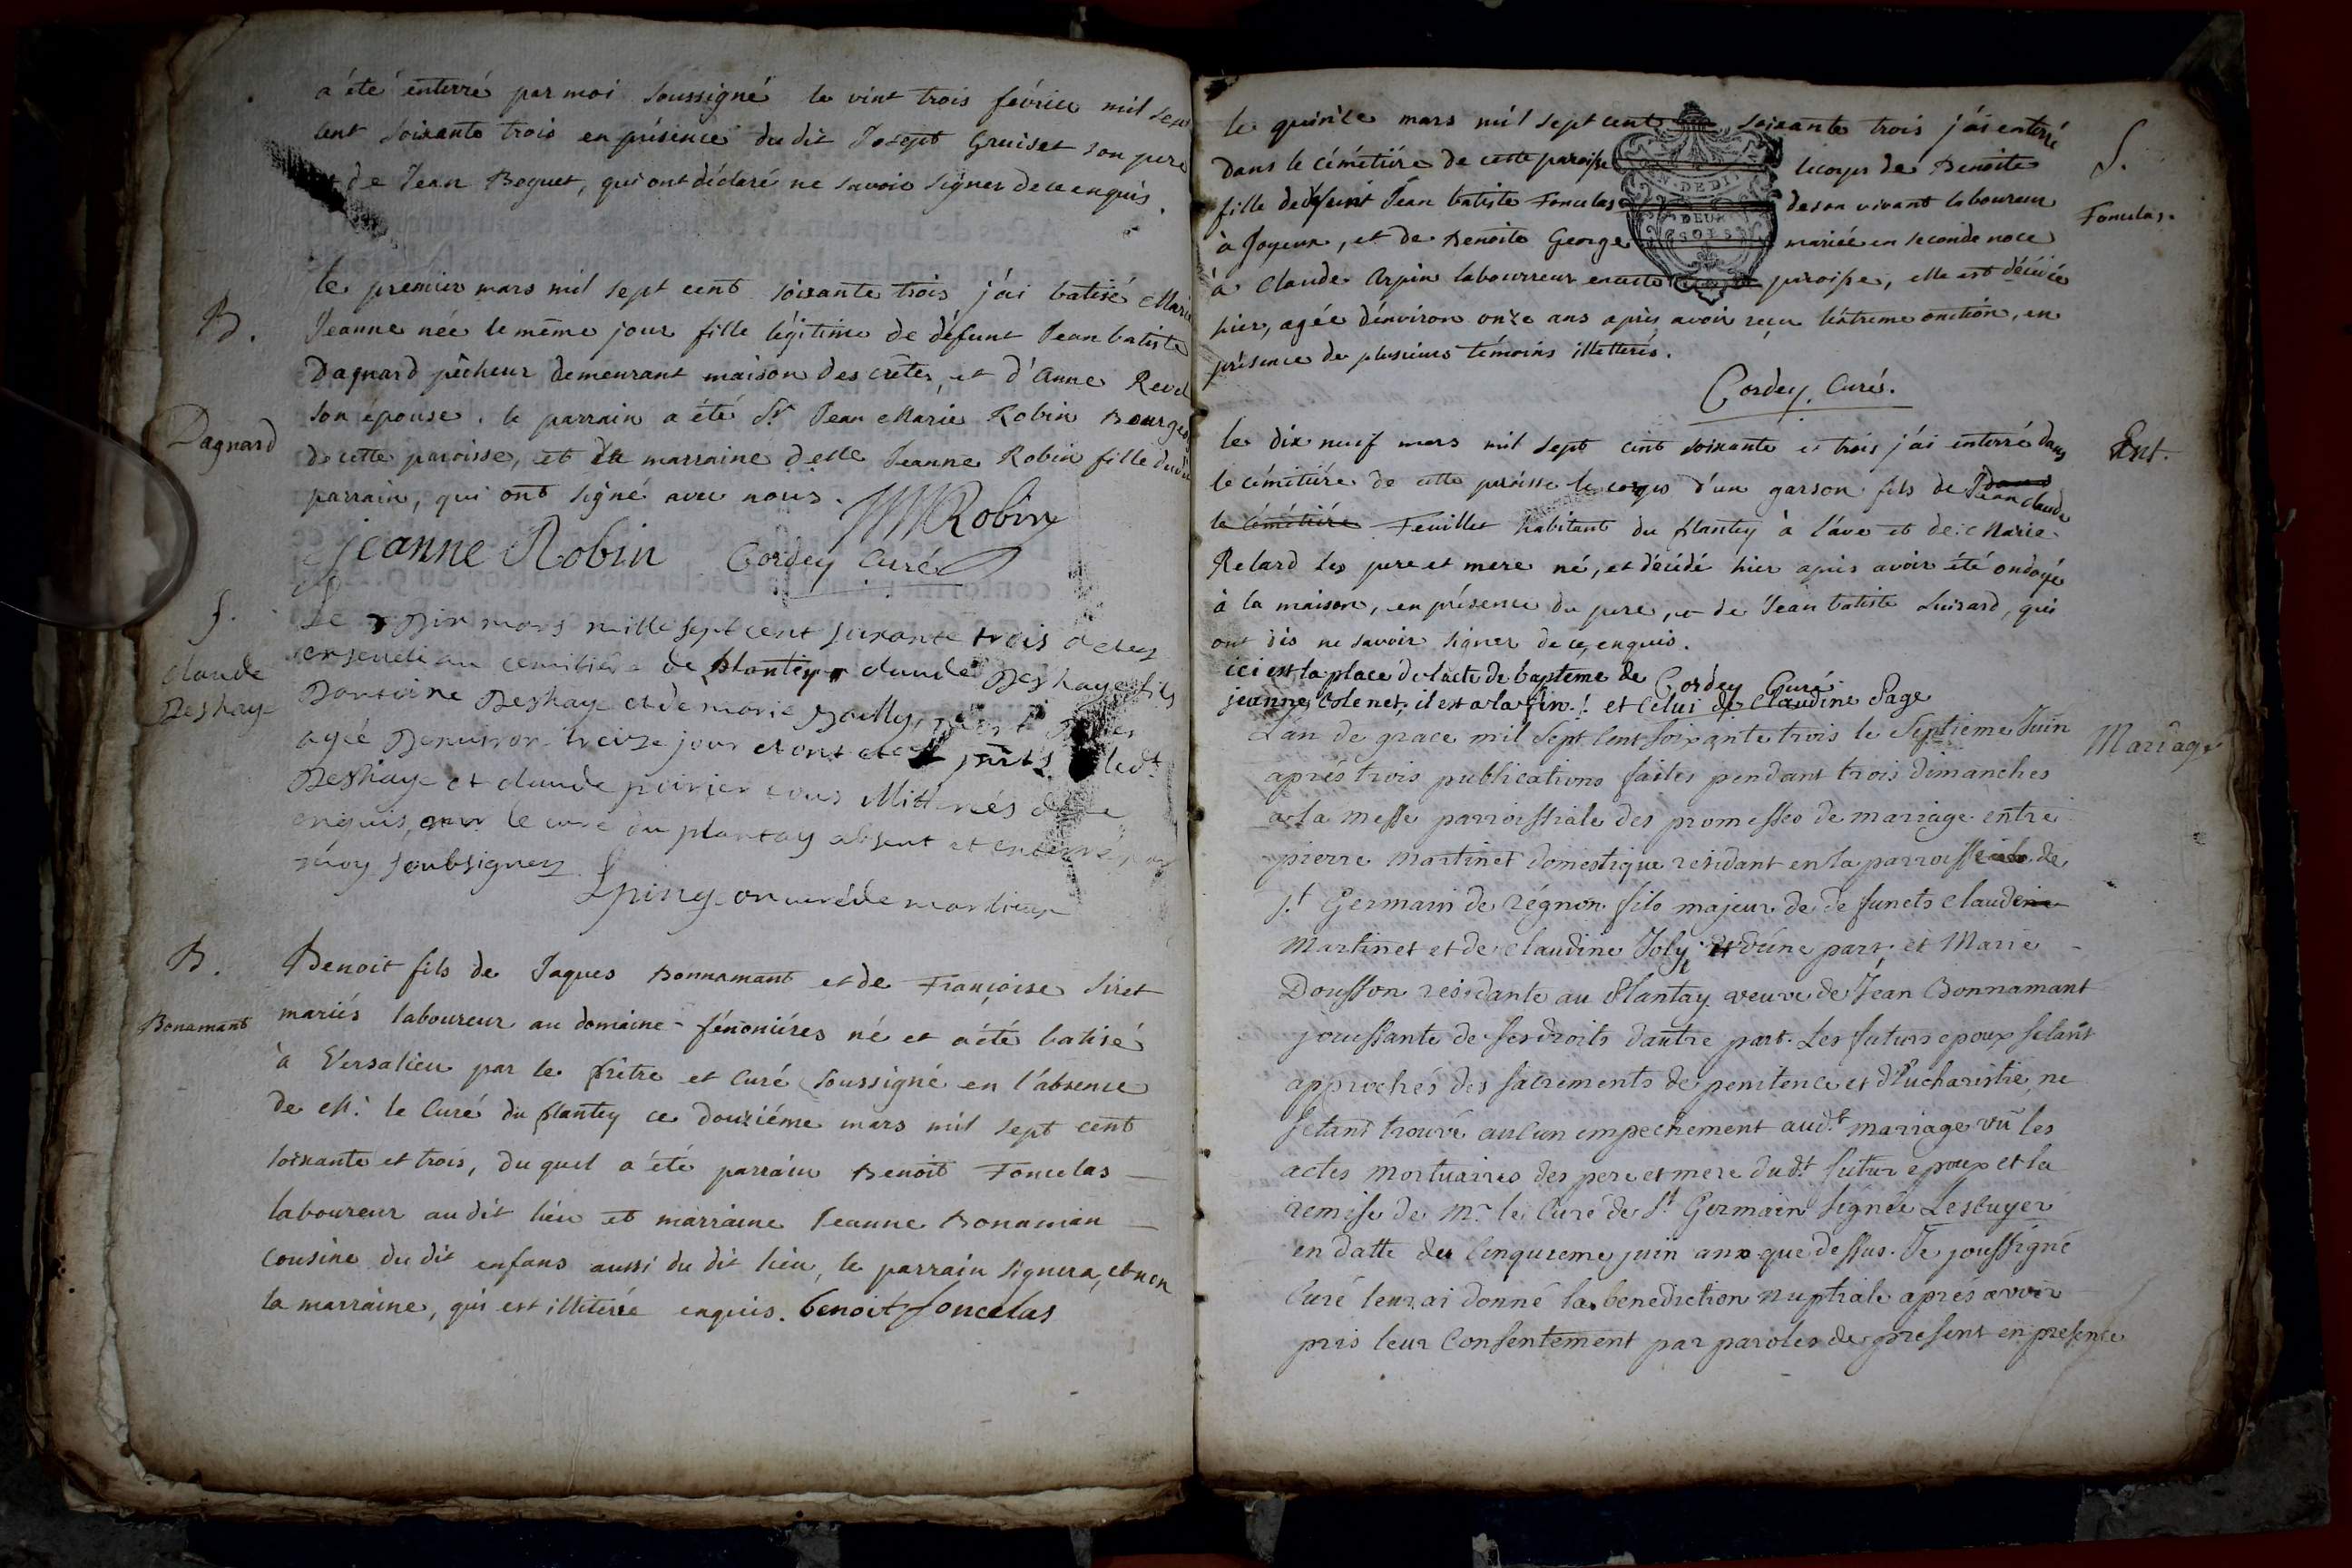 a été enterré par moi soussigné le vint trois février mil sept
cent soixante trois en présence du dit Josept Gruiset son pere
et de Jean Boguet, qui ont déclaré ne savoir signer de ce enquis.
B.
Dagnard
le premier mars mil sept cent soixante trois j'ai batisé Marie
Jeanne née le même jour fille légitime de défunt Jean batiste
Dagnard pêcheur demeurant maison des crêtes, et d'Anne Revel
son épouse. le parrain a été Sr. Jean Marie Robin Bourgeois
de cette paroisse, et la marraine delle Jeanne Robin fille dudit
parrain, qui ont signé avec nous.
JMRobin
jeanne Robin Cordey Curé
S.
Claude
Deshaye
Le Dix mars mille sept cent soixante trois a etez
enseveli au cemitière de plantey claude Deshaye fils
Dantoine Deshaye et de marie
agée Denviron treize jour et ont etez ledt
Deshaye et claude poirier tous illitérés de ce
enquis, le curé du plantay absent et enterré par
moy soubsignez
Epingeon curé de marlieux
B.
Bonamant
Benoit fils de Jaques Bonnamant et de Françoise Siret
mariés laboureur au domaine fénoniéres né et a été batisé
à Versalieu par le prêtre et Curé soussigné en l'absence
de Mr. le Curé du plantey ce douziéme mars mil sept cent
soixante et trois, du quel a été parrain Benoit Foncelas
laboureur au dit lieu et marraine Jeanne Bonaman
cousine du dit enfans aussi du dit lieu, le parrain signera, et non
la marraine, qui est illiterée enquis. benoit foncelas
le quinze mars mil sept cent soixante trois j'ai enterré
dans le cémétiére de cette paroisse le corps de Benoite
fille de défunt Jean batiste Foncelas de son vivant laboureur
à Joyeux, et de Benoite George mariée en seconde noce
à Claude Arpin labourreur en cette paroisse, elle est décédée
hier, agée d'environ onze ans après avoir reçu l'extreme onction, en
présence de plusieurs témoins illetterés.
S.
Foncelas.
DEUX
SOLS
Cordey, Curé.
le dix neuf mars mil sept cent soixante et trois j'ai enterré dans
le cémétiére de cette paroisse le corps d'un garson fils de dans Jean claude
le cémétiére Feuillet habitant du plantey à l'ave et de Marie
Relard ses pere et mere né, et décédé hier après avoir été ondoyé
à la maison, en présence du pere, et de Jean batiste Luisard, qui
ont dis ne savoir signer de ce, enquis.
Ent.
ici est la place de l'acte de bapteme de Cordey Curé
jeanne Colenet; il est a la fin.! et celui de Claudine Page
L'an de grace mil sept cent soixante trois le Septieme Juin
après trois publications faites pendant trois dimanches
a la messe parroissiale des promesses de mariage entre
pierre Martinet domestique residant en la parroisse de
St Germain de régnon fils majeur de defuncts claudine
Martinet et de claudine Joly, et d'une part, et Marie
Dousson residante au Plantay veuve de Jean Bonnamant
jouissante de ses droits dautre part. Les futurs epoux setant
approchés des sacrements de penitence et d'Eucharistie, ne
setant trouvé aucun empechement audt. mariage vû les
actes mortuaires des pere et mere dudt. futur epoux et la
remise de Mr. le Curé de St. Germain signée Lescuyer
en datte du cinquieme juin an que dessus. Je soussigné
Curé leur ai donné la benediction nuptiale après avoir
pris leur Consentement par paroles de present en presence
Mariage